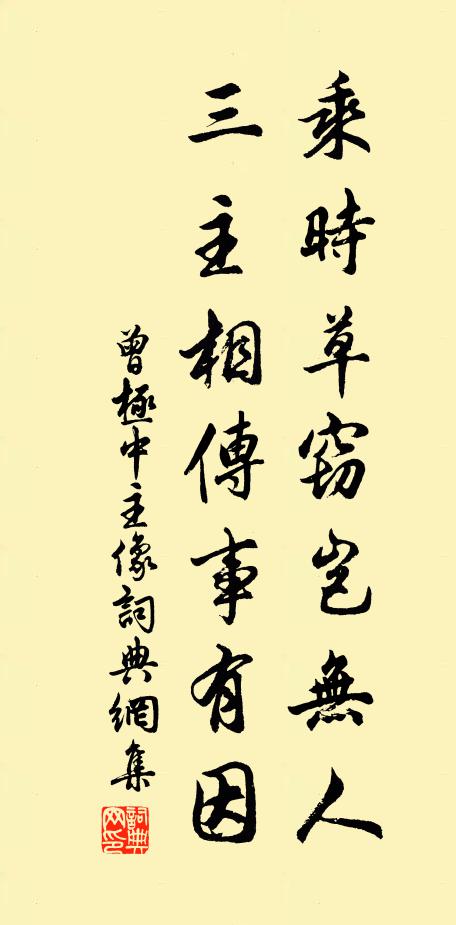 乘時草窃豈無人
三主相傳事有因
曾極中主像詞典網集
詞典网印